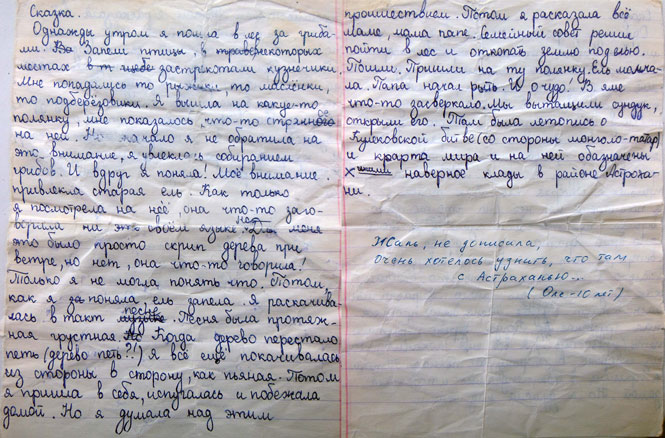 Сказка.
Однажды утром я пошла в лес за гриба-
ми. Запели птицы, в траве некоторых
местах застрекотали кузнечики.
Мне попадались то рыжики, то маслёнки,
то подберёзовики. Я вышла на какую-то
полянку, мне показалось, что-то странное
на ней. Но начало я не обратила на
это внимание, я увлеклась собиранием
грибов. И вдруг я поняла! Моё внимание
привлекла старая ель. Как только
я посмотрела на неё, она что-то заго-
ворила на своём языке. Нет меня
это было просто скрип дерева при
ветре, но нет, она что-то говорила!
Только я не могла понять что. Потом,
как я за поняла, ель запела. Я раскачива-
лась в такт песне. Песня была протяж-
ная грустная. Когда дерево перестало
петь (дерево петь?!) я всё ещё покачивалась
из стороны в сторону, как пьяная. Потом
я пришла в себя, испугалась и побежала
домой. Но я думала над этим
прошествием. Потом я рассказала всё
маме, мама папе. Семейный совет решил
пойти в лес и откопать землю под елью.
Пошли. Пришли на ту полянку. Ель молча-
ла. Папа начал рыть. И о чудо! В яме
что-то засверкало. Мы вытащили сундук,
открыли его. Там была летопись о
Куликовской битве (со стороны монголо-татар)
и карта мира и на ней обозначены
х-иками наверное клады в районе Астраха-
ни.
Жаль, не дописала,
очень хотелось узнать, что там
с Астраханью...
(Оле-10 лет)